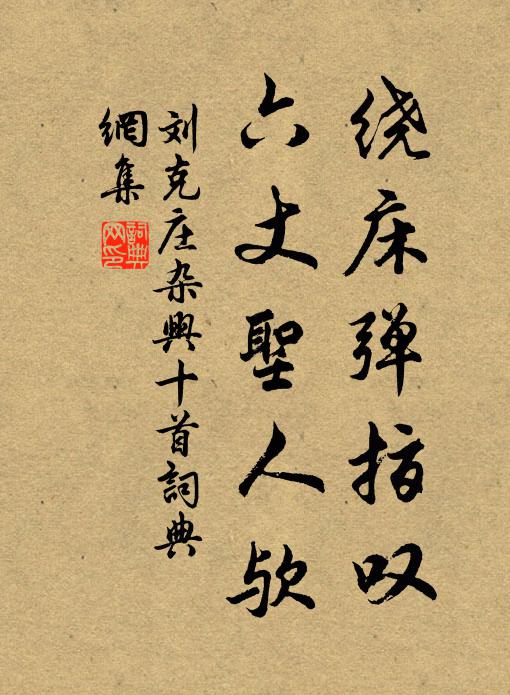 绕床弹指叹
六丈聖人欤
刘克庄杂興十首詞典
網集
詞典网印